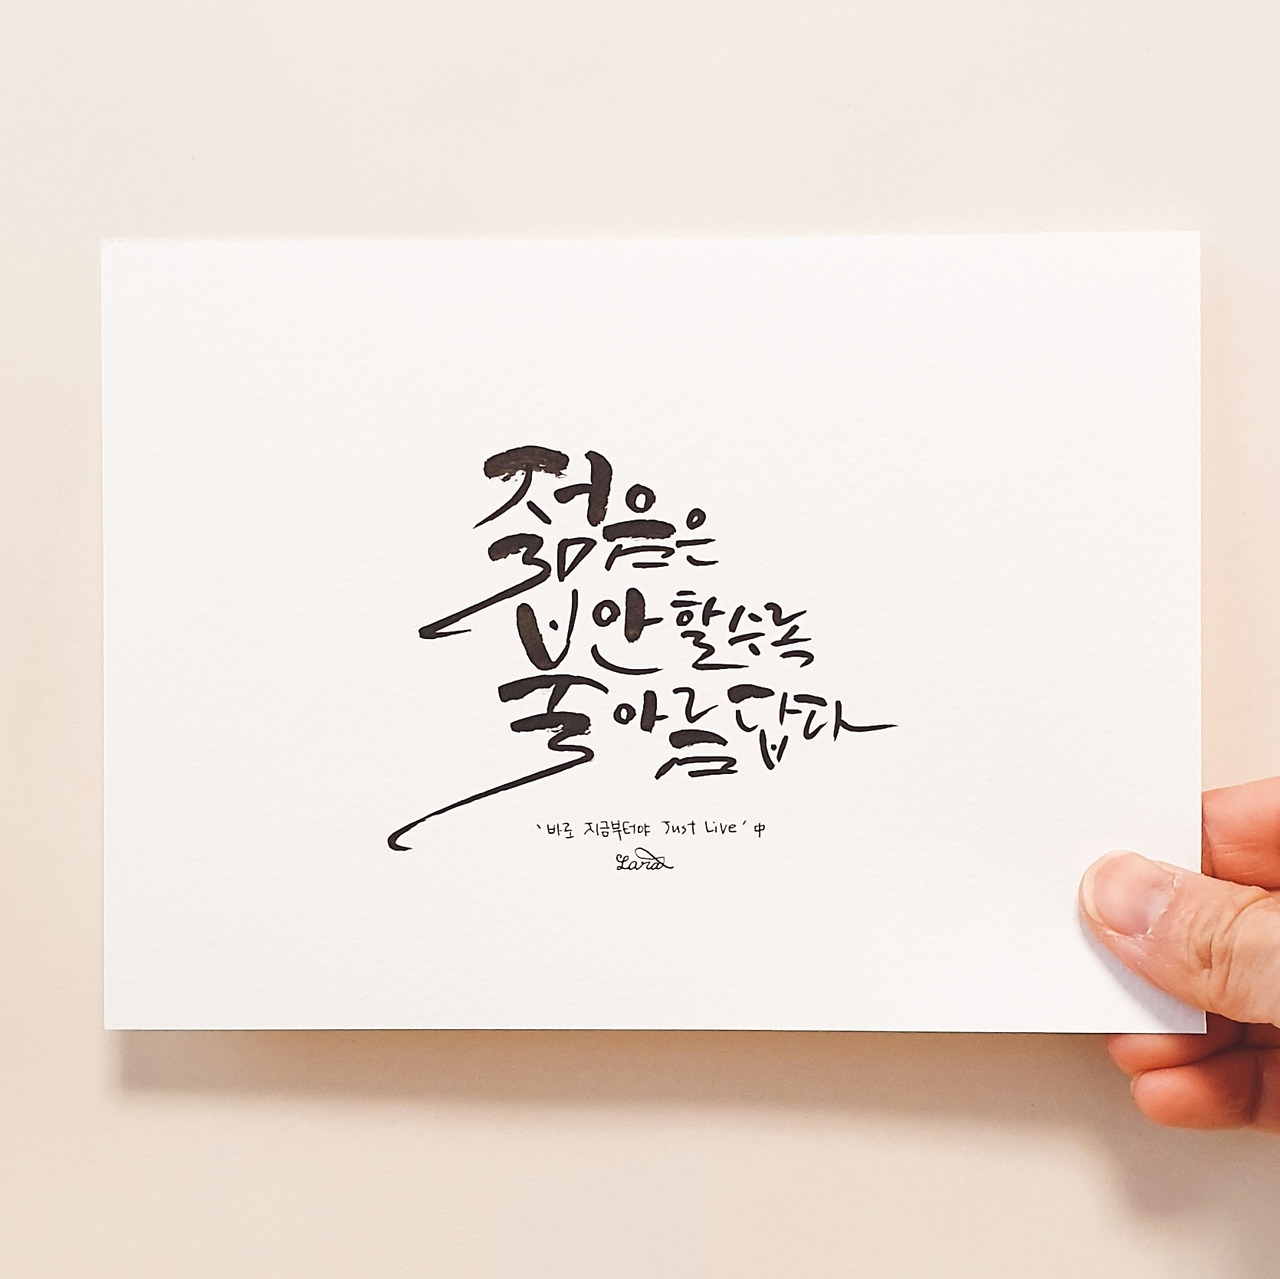 젊음은
불안할수록
아름답다
'바로 지금부터야 Just Live' 中
Lara